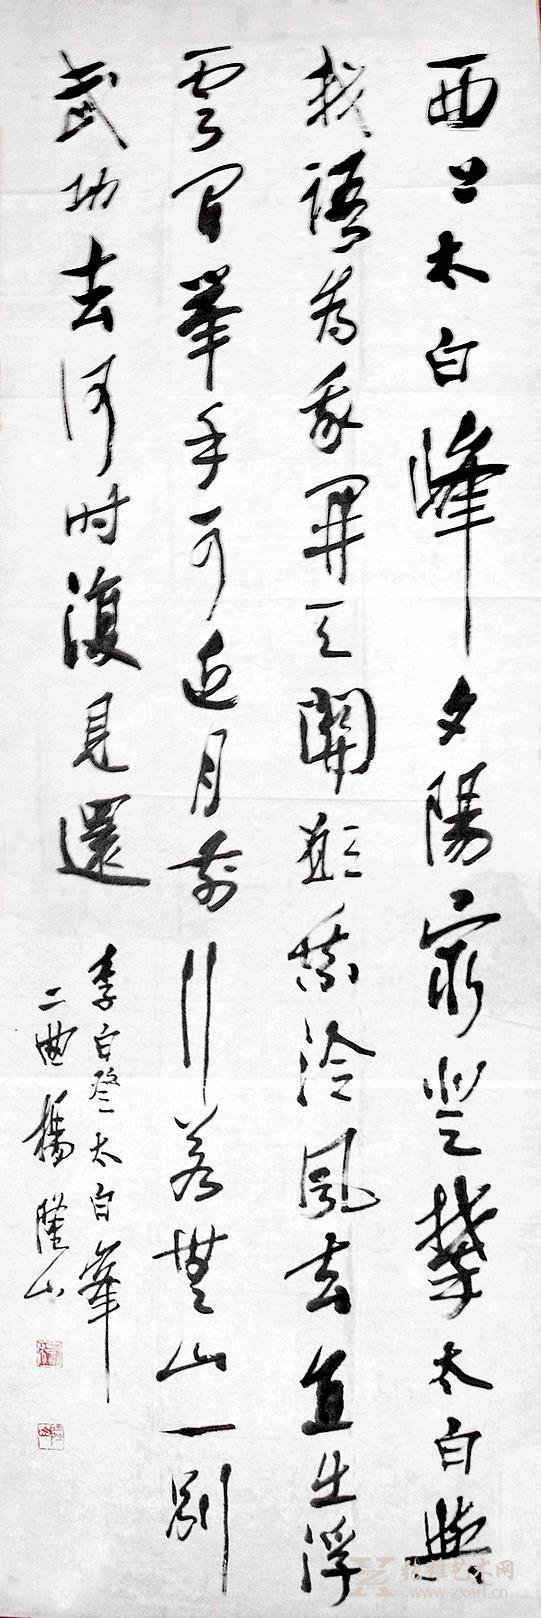 西上太白峰夕陽窮登攀太白與
我語為我開天關願乘泠風去直出浮
雲間舉手可近月前行若無山一別
武功去何时復見還
李白登太白峯
二曲楊隆山
张雄艺术网
www.zxart.cn